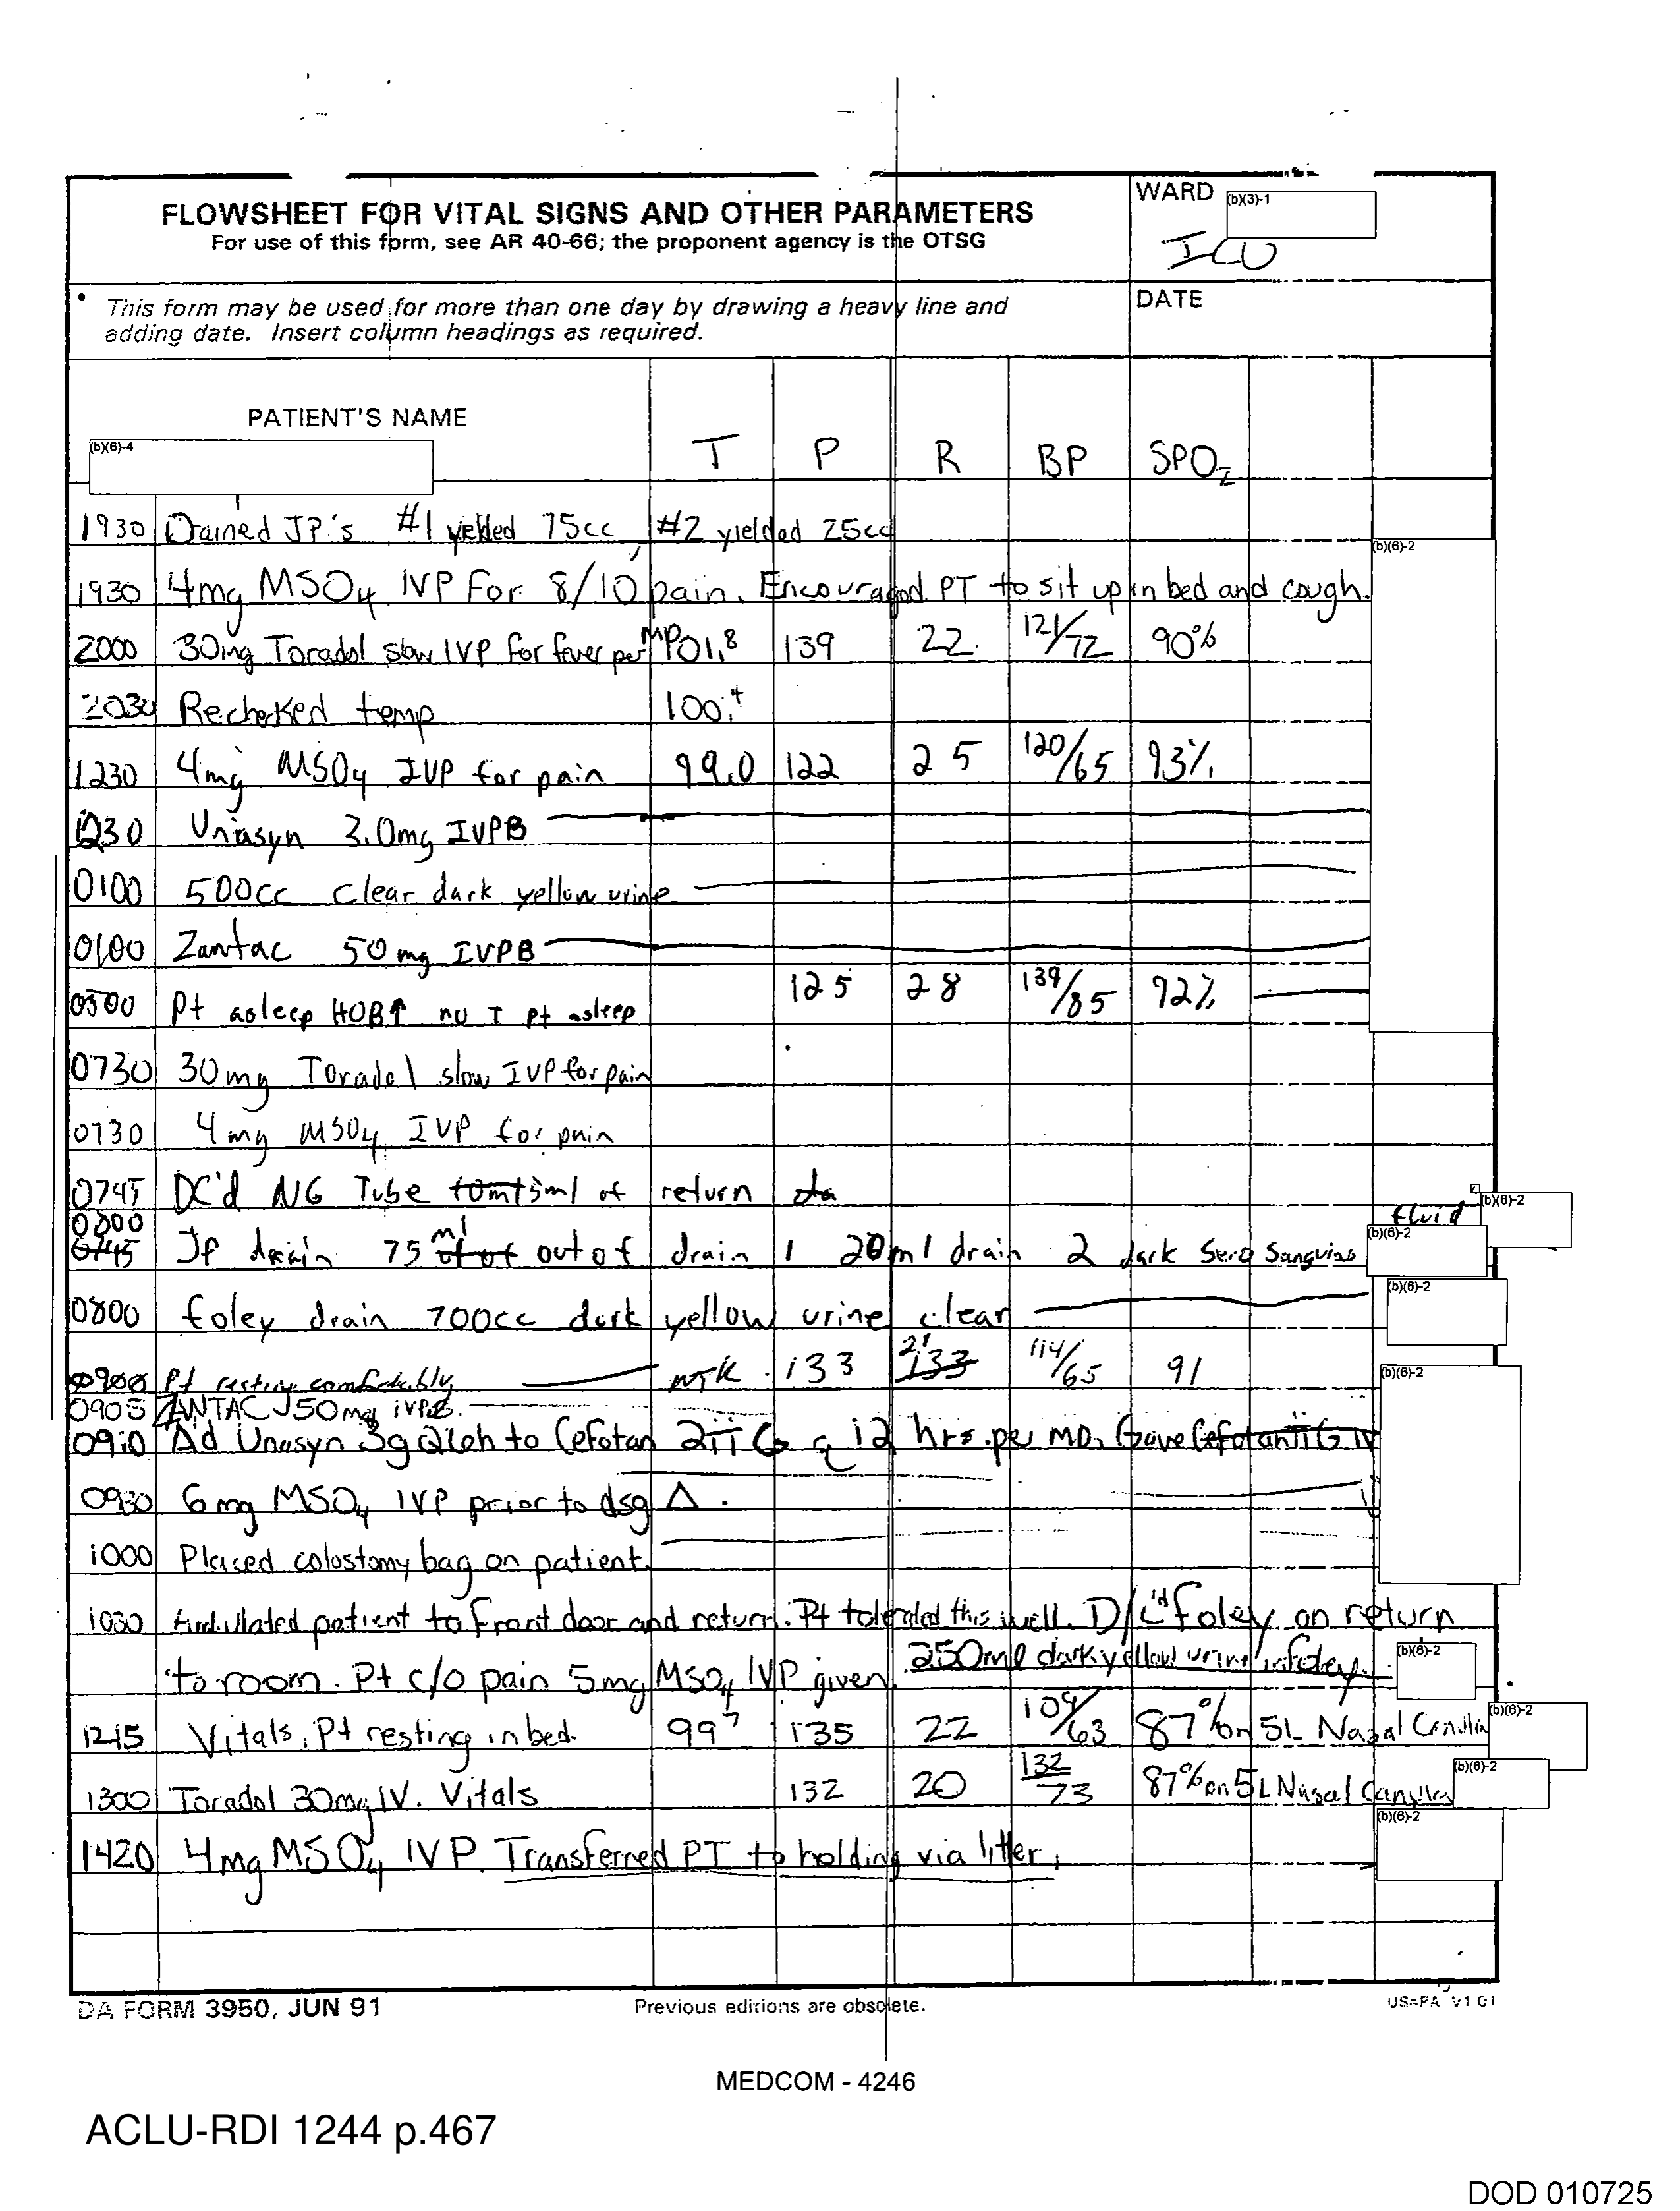 FLOWSHEET FOR VITAL SIGNS AND OTHER PARAMETERS
For use of this form, see AR 40-66; the proponent agency is the OTSG
WARD (b)(3)-1
ICU
This form may be used for more than one day by drawing a heavy line and
adding date. Insert column headings as required.
DATE
PATIENT'S NAME
(b)(6)-4
T P R BP SPO2
1930 Drained JP's #1 yielded 75cc, #2 yielded 25cc
(b)(6)-2
1930 4mg MSO4 IVP For 8/10 pain. Encouraged PT to sit up in bed and cough.
2000 30mg Toradol slow IVP for fever per MD 101.8 139 22 121/72 90%
2030 Rechecked temp 100.4
1230 4mg MSO4 IVP for pain 99.0 122 25 120/65 93%
1230 Unasyn 3.0mg IVPB
0100 500cc clear dark yellow urine
0100 Zantac 50mg IVPB
0500 Pt asleep HOB↑ no T pt asleep 125 28 139/85 92%
0730 30mg Toradol slow IVP for pain
0730 4mg MSO4 IVP for pain
0745 DC'd NG Tube 5ml of return
(b)(6)-2
0800 fluid
0745 JP drain 75 ml out of drain 1 20ml drain 2 dark Sero Sanguins
(b)(6)-2
0800 foley drain 700cc dark yellow urine clear
(b)(6)-2
0900 Pt resting comfortably 133 21 133 114/65 91
(b)(6)-2
0905 ZANTAC 50mg IVPB.
0910 Δ'd Unasyn 3g Q6h to Cefotan 2 ii G q 12 hrs. per MD. Gave Cefotan ii G IV
0930 6mg MSO4 IVP prior to dsg Δ.
1000 Placed colostomy bag on patient.
1030 Ambulated patient to front door and return. Pt tolerated this well. D/C'd foley on return
to room. Pt c/o pain 5mg MSO4 IVP given. 250ml dark yellow urine in foley.
(b)(6)-2
1215 Vitals. Pt resting in bed. 99.7 135 22 109/63 87% on 5L Nasal Cannula
(b)(6)-2
1300 Toradol 30mg IV. Vitals 132 20 132/73 87% on 5L Nasal Cannula
(b)(6)-2
1420 4mg MSO4 IVP. Transferred PT to holding via litter.
(b)(6)-2
DA FORM 3950, JUN 91
Previous editions are obsolete.
USAPA V1.01
MEDCOM - 4246
ACLU-RDI 1244 p.467
DOD 010725